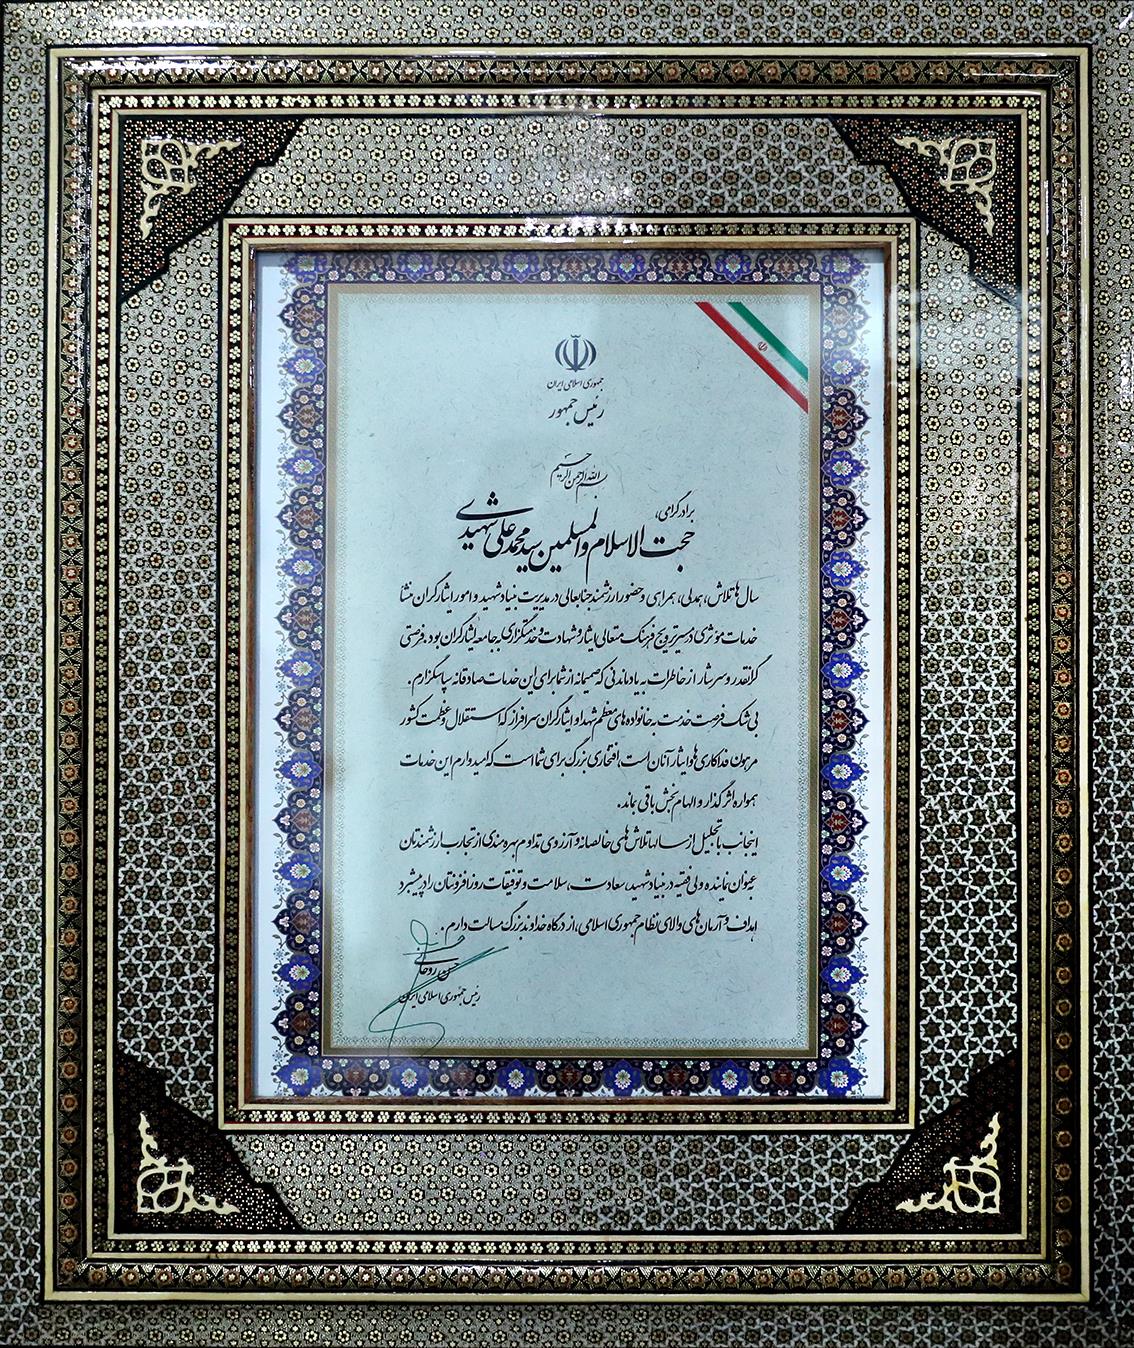 جمهوری اسلامی ایران
رئیس جمهور
بسم الله الرحمن الرحیم
برادر گرامی،
حجت الاسلام والمسلمین سید محمد علی شهیدی
سال ها تلاش، همدلی، همراهی و حضور ارزشمند جنابعالی در مدیریت بنیاد شهید و امور ایثارگران منشأ
خدمات مؤثری در مسیر ترویج فرهنگ متعالی ایثار و شهادت و خدمتگزاری به جامعه ایثارگران بود. فرصتی
گرانقدر و سرشار از خاطرات به یادماندنی که صمیمانه از شما برای این خدمات صادقانه سپاسگزارم.
بی شک فرصت خدمت به خانواده های معظم شهدا و ایثارگران سرافراز که استقلال و عظمت کشور
مرهون فداکاری ها و ایثار آنان است، افتخاری بزرگ برای شما است که امیدوارم این خدمات
همواره اثرگذار و الهام بخش باقی بماند.
اینجانب با تجلیل از سالها تلاش های خالصانه و آرزوی تداوم بهره مندی از تجارب ارزشمندتان
بعنوان نماینده ولی فقیه در بنیاد شهید، سعادت، سلامت و توفیقات روزافزونتان را در پیشبرد
اهداف و آرمان های والای نظام جمهوری اسلامی، از درگاه خداوند بزرگ مسالت دارم.
حسن روحانی
رئیس جمهوری اسلامی ایران